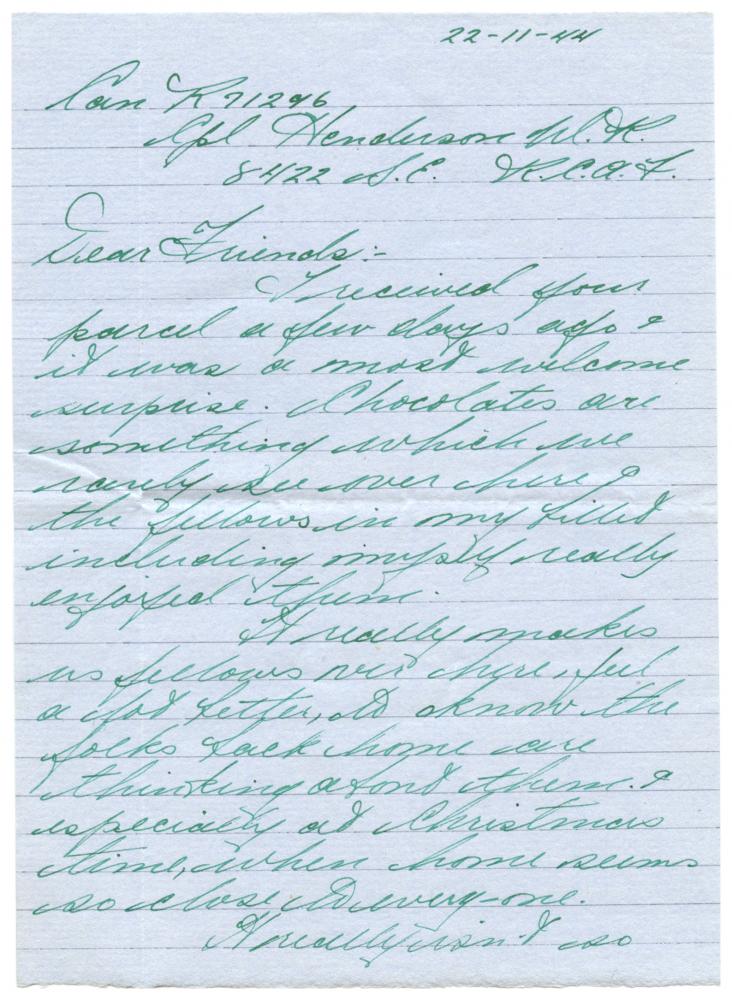 22-11-44
Can R71296
Cpl Henderson W.R.
8422 S.E. R.C.A.F.
Dear Friends:-
I received your
parcel a few days ago &
it was a most welcome
surprise. Chocolates are
something which we
rarely see over here &
the fellows in my billet
including myself really
enjoyed them.
It really makes
us fellows over here, feel
a lot better, to know the
folks back home are
thinking about them. &
especially at Christmas
time, when home seems
so close to every-one.
It really isn't so